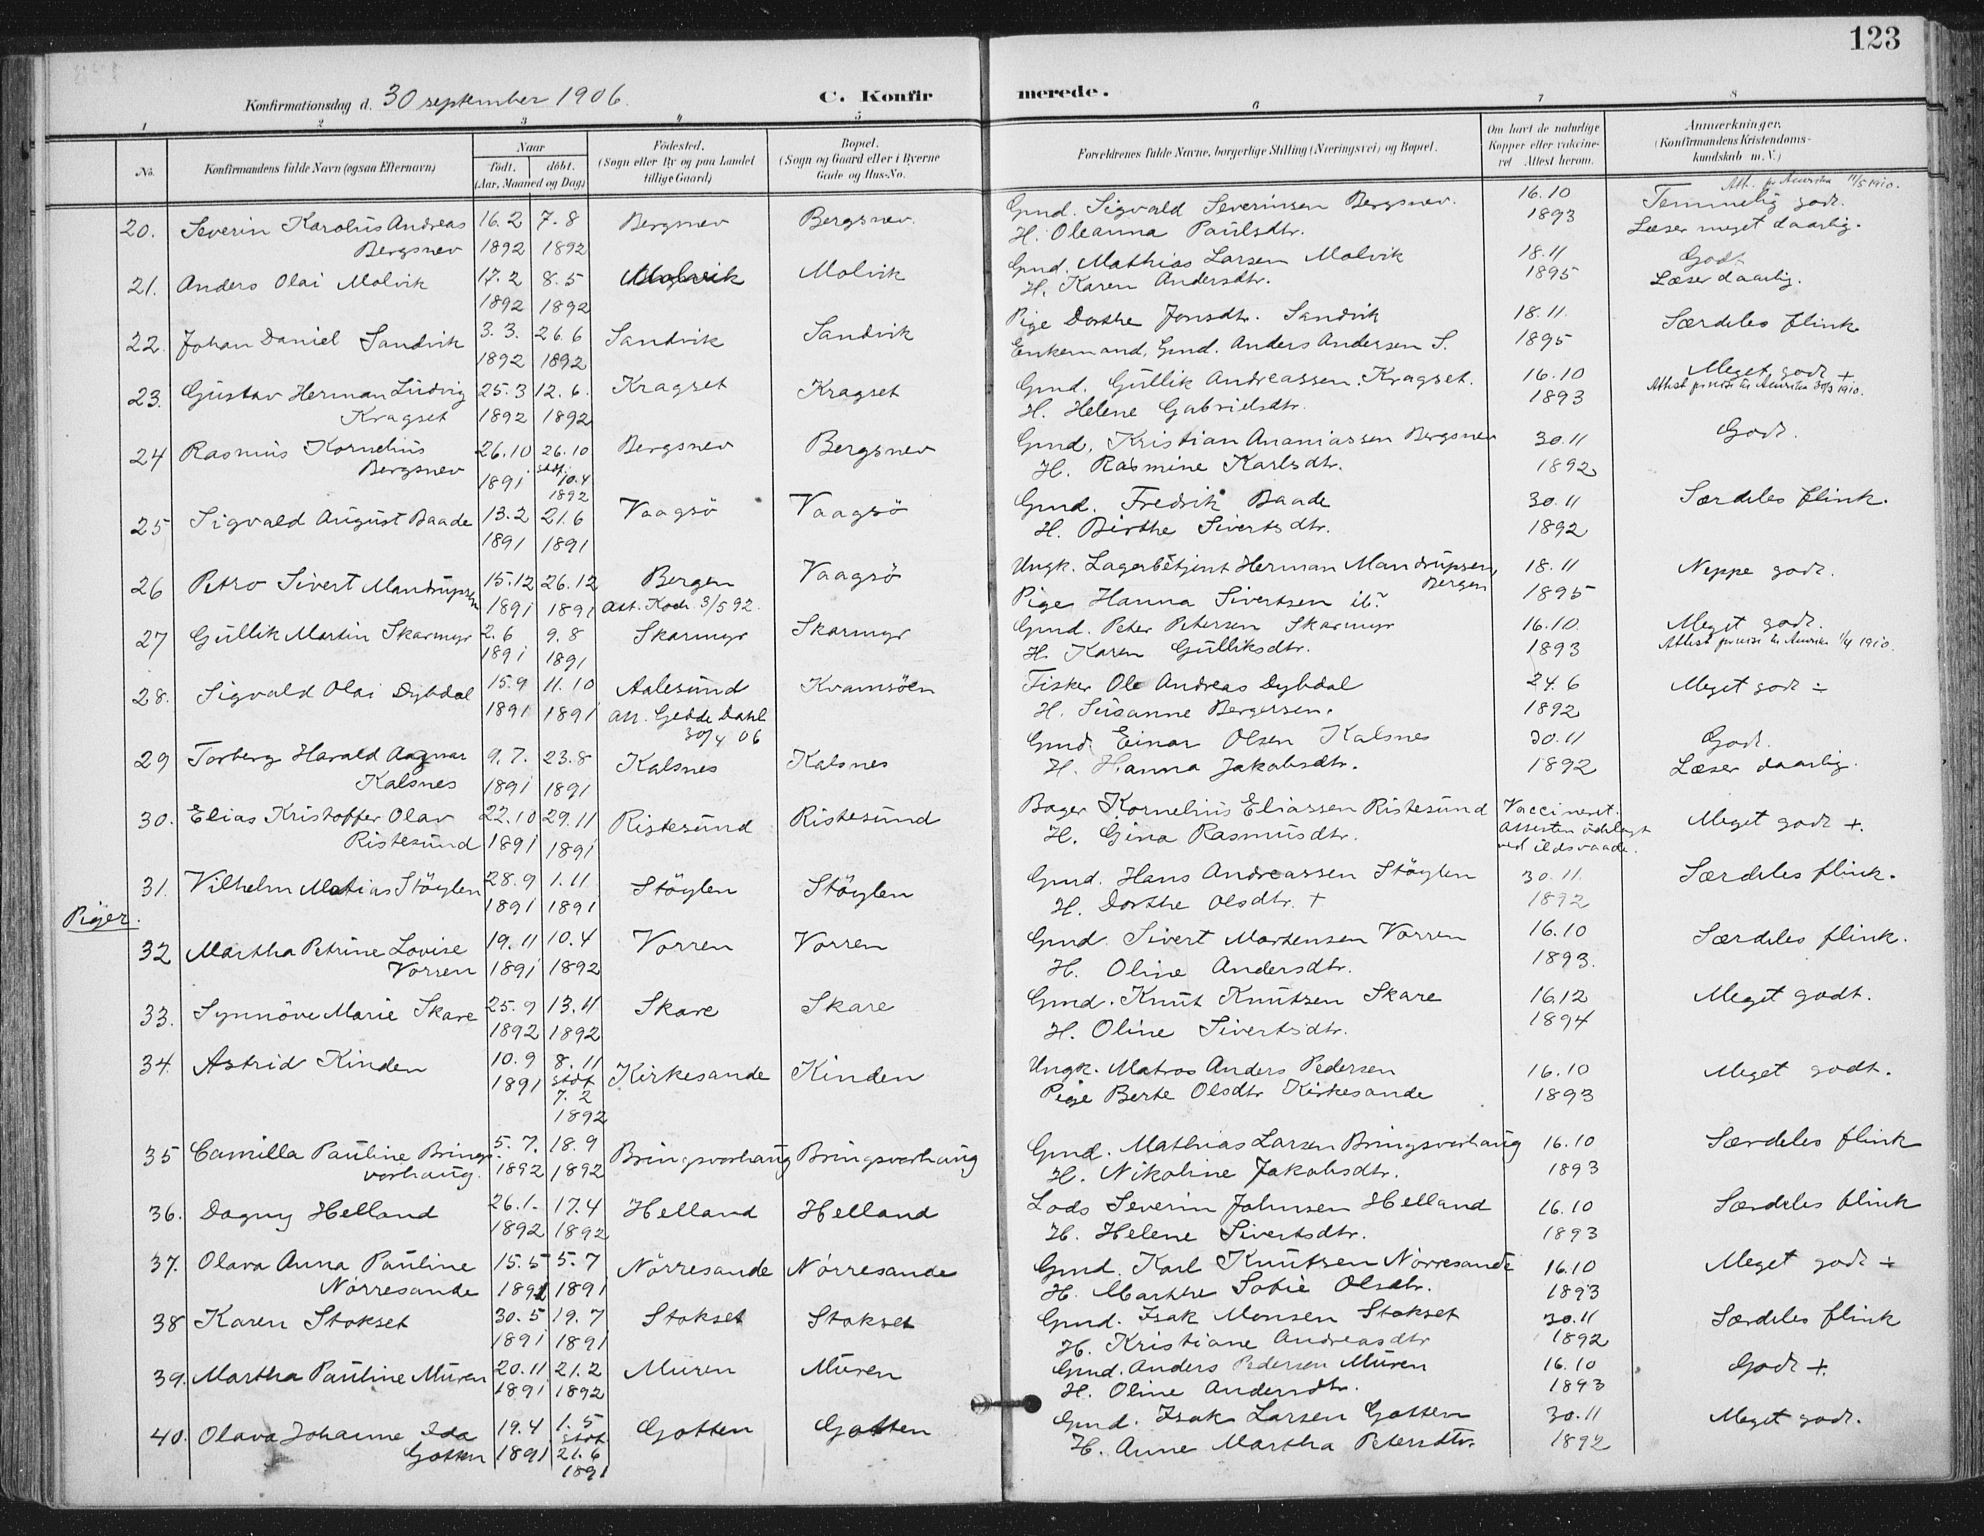 123
Konfirmationsdag d. 30 september 1906. C. Konfirmerede.
1 2 3 4 5 6 7 8
No. Konfirmandens fulde Navn (ogsaa Efternavn) Naar født. døbt. (Aar, Maaned og Dag) Fødested. (Sogn eller By og paa Landet tillige Gaard) Bopæl. (Sogn og Gaard eller i Byerne Gade og Hus-No. Forældrenes fulde Navne, borgerlige Stilling (Næringsvei) og Bopæl. Om havt de naturlige Kopper eller vaccineret. Attest herom. Anmærkninger. (Konfirmandens Kristendomskundskab m. V.)
Att. pr Amerika 11/5 1910.
20. Severin Karolus Andreas 16.2 7.8 Bergsnev Bergsnev. Gmd. Sigvald Severinsen Bergsnev. 16.10 Temmelig godt.
Bergsnev 1892 1892 H. Oleanna Paulsdtr. 1893 Læser meget daarlig.
21. Anders Olai Molvik 17.2 8.5 Molvik Molvik Gmd. Mathias Larsen Molvik 18.11 Godt
1892 1892 H. Karen Andersdtr. 1895 Læser daarlig.
22. Johan Daniel Sandvik 3.3. 26.6 Sandvik Sandvik Pige Dorthe Jonsdtr. Sandvik 18.11. Særdeles flink
1892 1892 Enkemand, Gmd. Anders Andersen S. 1895
23. Gustav Herman Ludvig 25.3 12.6. Kragset Kragset Gmd. Gullik Andreassen Kragset. 16.10 Meget godt +
Kragset 1892 1892 H. Helene Gabrielsdtr. 1893 Attest til Amerika 30/3 1910.
24 Rasmus Kornelius 26.10 26.10 Bergsnev Bergsnev Gmd. Kristian Ananiassen Bergsnev 30.11 Godt.
Bergsnev 1891 stdf. 10.4 1892 H. Rasmine Karlsdtr. 1892
25 Sigvald August Baade 13.2 21.6 Vaagsö Vaagsö Gmd. Fredrik Baade 30.11 Særdeles flink.
1891 1891 H. Birthe Sivertsdtr. 1892
26 Petro Sivert Mandrupsen 15.12 26.12 Bergen Vaagsö Ungk. Lagerbetjent Herman Mandrupsen, Bergen 18.11 Neppe godt.
1891 1891 att. Koch 3/5 92. Pige Hanna Sivertsen ib. 1895
27 Gullik Martin Skarmyr 2.6 9.8 Skarmyr Skarmyr Gmd. Peter Petersen Skarmyr 16.10. Meget godt.
1891 1891 H. Karen Gulliksdtr. 1893 Attest til Amerika 1/4 1910.
28. Sigvald Olai Dybdal 15.9 11.10 Aalesund Kvamsöen Fisker Ole Andreas Dybdal 24.6 Meget godt ÷
1891 1891 att. Gedde Dahl 30/4 06 H. Susanne Bergersen. 1892
29 Torberg Harald Ragnar 9.7. 23.8 Kalsnes Kalsnes Gmd. Einar Olsen Kalsnes 30.11 Godt.
Kalsnes 1891 1891 H. Hanna Jakobsdtr. 1892 Læser daarlig.
30. Elias Kristoffer Olav 22.10 29.11 Ristesund Ristesund Bager Kornelius Eliassen Ristesund Vaccineret. Meget godt +.
Ristesund 1891 1891 H. Gina Rasmusdtr. Attesten ödelagt ved ildsvaade.
31. Vilhelm Matias Stöylen 28.9 1.11 Stöylen Stöylen Gmd. Hans Andreassen Stöylen 30.11. Særdeles flink.
1891 1891 H. Dorthe Olsdtr. + 1892
Piger.
32 Martha Petrine Lovise 19.11 10.4 Vorren Vorren Gmd. Sivert Mortensen Vorren 16.10 Særdeles flink.
Vorren 1891 1892 H. Oline Andersdtr. 1893.
33. Synnöve Marie Skare 25.9 13.11 Skare Skare Gmd. Knut Knutsen Skare 16.12 Meget godt.
1892 1892 H. Oline Sivertsdtr. 1894
34. Astrid Kinden 10.9 8.11 Kirkesande Kinden Ungk. Matros Anders Pedersen 16.10 Meget godt.
1891 stdf. 7.2 1892 Pige Berte Olsdtr Kirkesande 1893
35 Camilla Pauline Brings- 5.7. 18.9 Bringsvorhaug Bringsvorhaug Gmd. Mathias Larsen Bringsvorhaug 16.10 Særdeles flink
vorhaug. 1892 1892 H. Nikoline Jakobsdtr. 1893
36. Dagny Helland 26.1. 17.4 Helland Helland Lods Severin Johnsen Helland 16.10 Særdeles flink
1892 1892 H. Helene Sivertsdtr. 1893
37. Olava Anna Pauline 15.5 5.7 Nörresande Nörresande Gmd. Karl Knutsen Nörresande 16.10 Meget godt ÷
Nörresande 1891 1891 H. Marthe Sofie Olsdtr. 1893
38 Karen Stokset 30.5 19.7 Stokset Stokset Gmd. Isak Monsen Stokset 30.11 Særdeles flink
1891 1891 H. Kristiane Andreasdtr 1892
39. Martha Pauline Muren 20.11 21.2 Muren Muren Gmd. Anders Pedersen Muren 16.10 Godt +.
1891 1892 H. Oline Andersdtr. 1893
40. Olava Johanne Ida 19.4 1.5 Gotten Gotten Gmd. Isak Larsen Gotten 30.11 Meget godt.
Gotten 1891 stdf. 21.6 1891 H. Anne Martha Petersdtr. 1892